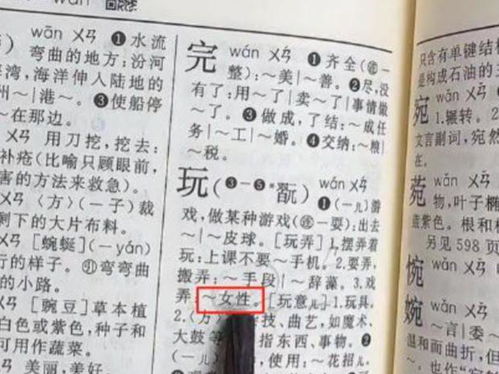 wān wán
wān ㄨㄢ ❶水流
弯曲的地方:汾河
湾,海洋伸入陆地的
州~|港~。❸使船停
~在那边。
ㄨㄢ 用刀挖,挖去:
补疮(比喻只顾眼前,
害的方法来救急)。
ㄨㄢ (方)(一子)裁
剩下的大片布料。
ㄨㄢ [蜿蜒](-yán)
行的样子。㉑弯弯曲
的小路。
ㄨㄢ [豌豆]草本植
白色或紫色,种子和
可作蔬菜。
ㄨㄢ 美丽,美好
完 wán ㄨㄢˊ ❶齐全(㊣一
整):~美|~善。❷尽,没
有了:用~了|卖~了|事情做
~了。❸做成,了结:~成任
务|~工|~婚。❹交纳:~粮
|~税。
玩(❸-❺*翫) wán ㄨㄢˊ
❶(一儿)游
戏,做某种游戏(㊣一耍):出去
~|~皮球。[玩弄]1.摆弄着
玩:上课不要~手机。2.耍弄,
搬弄:~手段|~辞藻。3.戏
弄:~女性。[玩意儿]1.玩具。
2.(方)技、曲艺,如魔术、
大鼓等指东西、事物。❷
(一儿)弄,使用:~花招儿。
只含有单键结构
是构成石油的主
宛 wǎn ㄨㄢˇ
❶1.辗转。2.
文言副词,宛然
菀 wǎn ㄨㄢˇ
物,叶子椭
造紫色。根和
另见598页
惋 wǎn ㄨㄢˇ
婉 wǎn ㄨㄢˇ
~言|委~
温和而曲折,